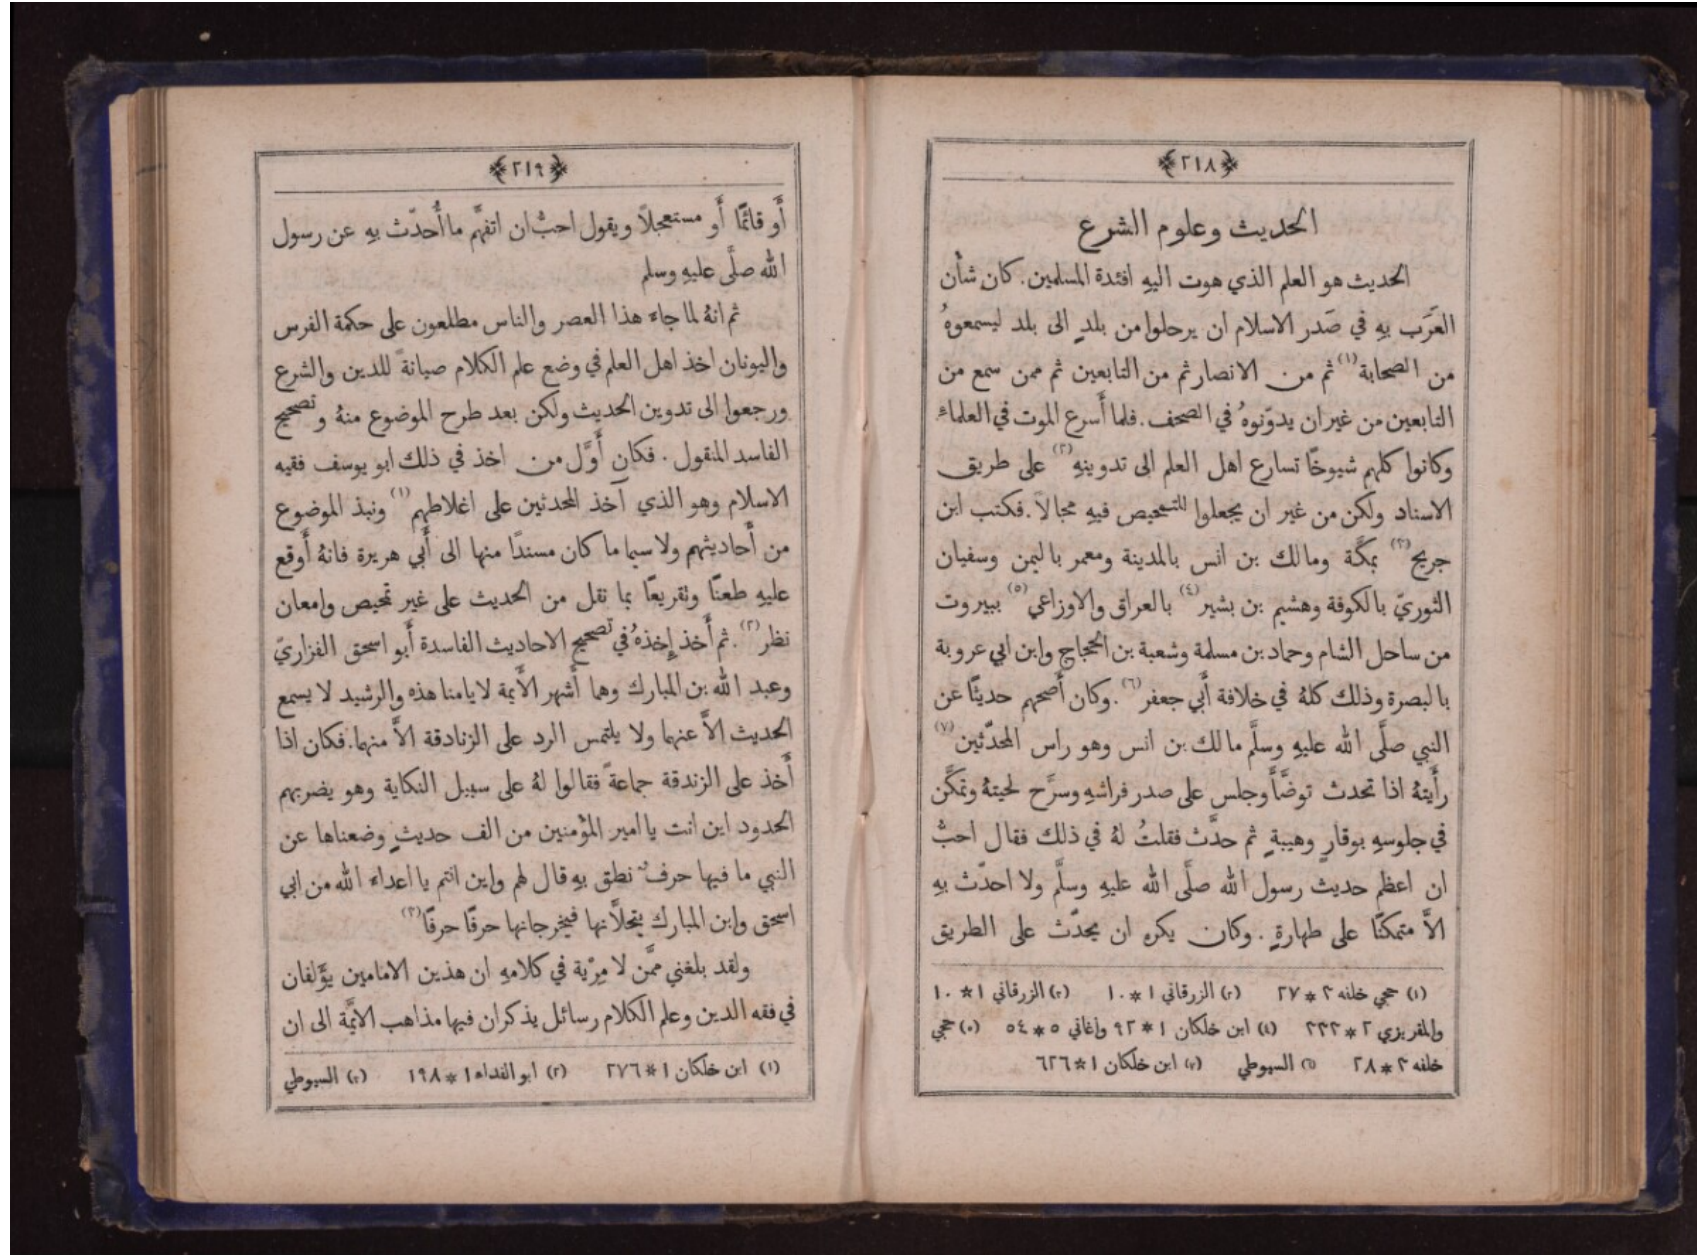 ﴿٢١٨﴾
الحديث وعلوم الشرع
الحديث هو العلم الذي هوت اليهِ افئدة المسلمين. كان شأن
العَرَب بهِ في صَدر الاسلام ان يرحلوا من بلدٍ الى بلد ليسمعوهُ
من الصحابة (١) ثم من الانصار ثم من التابعين ثم ممن سمع من
التابعين من غير ان يدوّنوهُ في الصحف. فلما أَسرع الموت في العلماءِ
وكانوا كلهم شيوخًا تسارع اهل العلم الى تدوينهِ (٢) على طريق
الاسناد ولكن من غير ان يجعلوا للتمحيص فيهِ مجالاً. فكتب ابن
جريج (٣) بمكَّة ومالك بن انس بالمدينة ومعمر باليمن وسفيان
الثوريّ بالكوفة وهشيم بن بشير (٤) بالعراق والاوزاعي (٥) ببيروت
من ساحل الشام وحماد بن مسلمة وشعبة بن الحجاج وابن ابي عروبة
بالبصرة وذلك كلهُ في خلافة أَبي جعفر (٦). وكان أَصحهم حديثًا عن
النبي صلَّى الله عليهِ وسلَّم مالك بن انس وهو راس المحدّثين (٧)
رأَيتهُ اذا تحدث توضَّأَ وجلس على صدر فراشهِ وسرَّح لحيتهُ وتمكَّن
في جلوسهِ بوقارٍ وهيبةٍ ثم حدَّث فقلتُ لهُ في ذلك فقال احبُّ
ان اعظم حديث رسول الله صلَّى الله عليهِ وسلَّم ولا احدّث بهِ
الاَّ متمكنًا على طهارةٍ. وكان يكره ان يحدّث على الطريق
(١) حجي خلفه ٣*٢٧ (٢) الزرقاني ١*١٠ (٣) الزرقاني ١*١٠
والمقريزي ٢*٢٣٣ (٤) ابن خلكان ١*٩٢ واغاني ٥*٥٤ (٥) حجي
خلفه ٣*٢٨ (٦) السيوطي (٧) ابن خلكان ١*٦٢٦
﴿٢١٩﴾
أَو قائمًا أَو مستعجلاً ويقول احبُّ ان اتفهَّم ما أُحدّث بهِ عن رسول
الله صلَّى عليهِ وسلم
ثم انهُ لما جاء هذا العصر والناس مطلعون على حكمة الفرس
واليونان اخذ اهل العلم في وضع علم الكلام صيانةً للدين والشرع
ورجعوا الى تدوين الحديث ولكن بعد طرح الموضوع منهُ وتصحيح
الفاسد المنقول. فكان أَوَّل من اخذ في ذلك ابو يوسف فقيه
الاسلام وهو الذي آخذ المحدثين على اغلاطهم (١) ونبذ الموضوع
من أَحاديثهم ولا سيما ما كان مسندًا منها الى أَبي هريرة فانهُ أَوقع
عليهِ طعنًا وتقريعًا بما نقل من الحديث على غير تمحيص وامعان
نظر (٢). ثم أَخذ إِخذهُ في تصحيح الاحاديث الفاسدة أَبو اسحق الفزاريّ
وعبد الله بن المبارك وهما أَشهر الأَيمة لايامنا هذه والرشيد لا يسمع
الحديث الاَّ عنهما ولا يلتمس الرد على الزنادقة الاَّ منهما. فكان اذا
أَخذ على الزندقة جماعةً فقالوا لهُ على سبيل النكاية وهو يضربهم
الحدود اين انت يا امير المؤْمنين من الف حديثٍ وضعناها عن
النبي ما فيها حرفٌ نطق بهِ قال لهم واين انتم يا اعداء الله من ابي
اسحق وابن المبارك يتخلاَّنها فيخرجانها حرفًا حرفًا (٣)
ولقد بلغني ممَّن لا مِرْية في كلامهِ ان هذين الامامين يؤَلفان
في فقه الدين وعلم الكلام رسائل يذكران فيها مذاهب الايمَّة الى ان
(١) ابن خلكان ١*٢٧٦ (٢) ابو الفداء ١*١٩٨ (٣) السيوطي